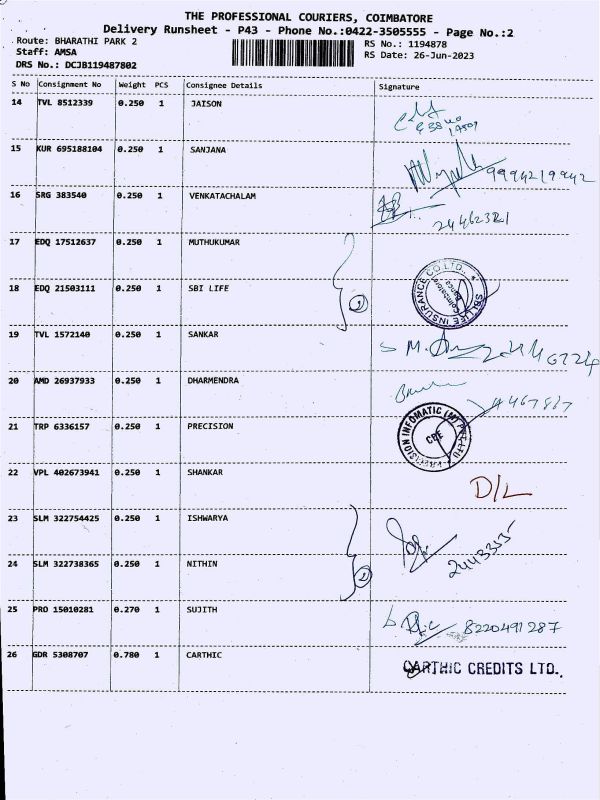 THE PROFESSIONAL COURIERS, COIMBATORE
Delivery Runsheet - P43 - Phone No.:0422-3505555 - Page No.:2
Route: BHARATHI PARK 2
RS No.: 1194878
Staff: AMSA
RS Date: 26-Jun-2023
DRS No.: DCJB119487802
S No Consignment No Weight PCS Consignee Details Signature
14 TVL 8512339 0.250 1 JAISON
15 KUR 695188104 0.250 1 SANJANA 9994219942
16 SRG 383540 0.250 1 VENKATACHALAM
17 EDQ 17512637 0.250 1 MUTHUKUMAR
18 EDQ 21503111 0.250 1 SBI LIFE
SBI LIFE INSURANCE CO LTD.
Coimbatore
19 TVL 1572140 0.250 1 SANKAR
20 AMD 26937933 0.250 1 DHARMENDRA
21 TRP 6336157 0.250 1 PRECISION
PRECISION INFOMATIC (M) PVT LTD
CBE
22 VPL 402673941 0.250 1 SHANKAR D/L
23 SLM 322754425 0.250 1 ISHWARYA
24 SLM 322738365 0.250 1 NITHIN
25 PRO 15010281 0.270 1 SUJITH 8220491287
26 GDR 5308707 0.780 1 CARTHIC CARTHIC CREDITS LTD.